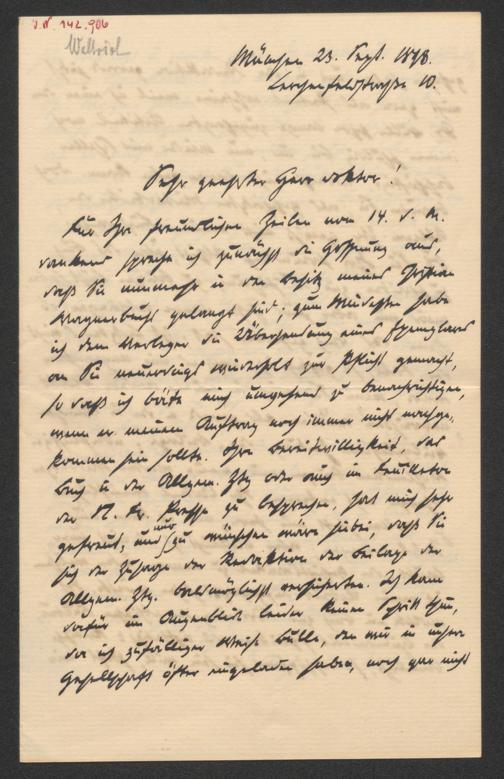 I.N. 142.906
Weltrich
München 23. Sept. 1898.
Lerchenfeldstraße 10.
Sehr geehrter Herr Doktor!
Für Ihre freundlichen Zeilen vom 14. d. M.
dankend spreche ich zunächst die Hoffnung aus,
daß Sie nunmehr in den Besitz meines Tristan
Wagnerbuchs gelangt sind; zum Mindesten habe
ich dem Verleger die Übersendung eines Exemplares
an Sie neuerdings wiederholt zur Pflicht gemacht,
so daß ich bäte mich umgehend zu benachrichtigen,
wenn er meinem Auftrag noch immer nicht nachge-
kommen sein sollte. Ihre Bereitwilligkeit, das
Buch in der Allgem. Ztg oder auch im Feuilleton
der N. Fr. Presse zu besprechen, hat mich sehr
gefreut, und nur zu wünschen wäre hiebei, daß Sie
sich der Zusage der Redaktion der Beilage der
Allgem. Ztg. baldmöglichst versicherten. Ich kann
dafür im Augenblick leider keinen Schritt thun,
da ich zufälliger Weise Bulle, den wir in unsere
Gesellschaft öfter eingeladen haben, noch gar nicht